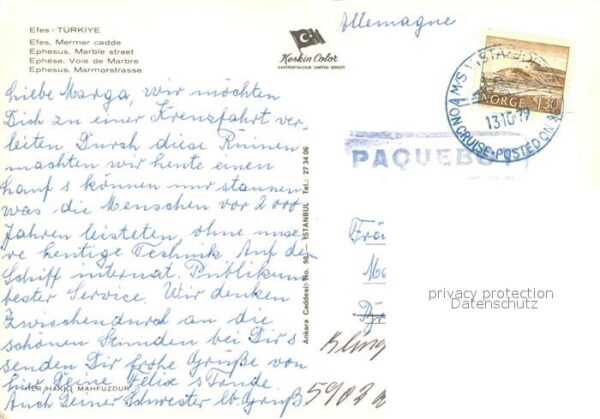 Efes - TÜRKİYE
Efes, Mermer cadde
Ephesus, Marble street
Ephèse, Voie de Marbre
Ephesus, Marmorstrasse
Keskin Color
KARTPOSTALCILIK LIMITED ŞİRKETİ
Allemagne
NORGE 130
13·10·79
ON CRUISE · POSTED ON
PAQUEBO
Liebe Marga, wir möchten
Dich zu einer Kreuzfahrt ver-
leiten. Durch diese Ruinen
machten wir heute einen
Lauf u können nur staunen
was die Menschen vor 2000
Jahren leisteten, ohne unse-
re heutige Technik. Auf dem
Schiff internat. Publikum
bester Service. Wir denken
Zwischendurch an die
schönen Stunden bei Dir u
senden Dir frohe Grüße von
hier Deine Felix u Trude.
Auch Deiner Schwester lb Gruß
HAKKI MAHFUZDUR
Ankara Caddesi No. İSTANBUL Tel.: 27 34 06
privacy protection
Datenschutz